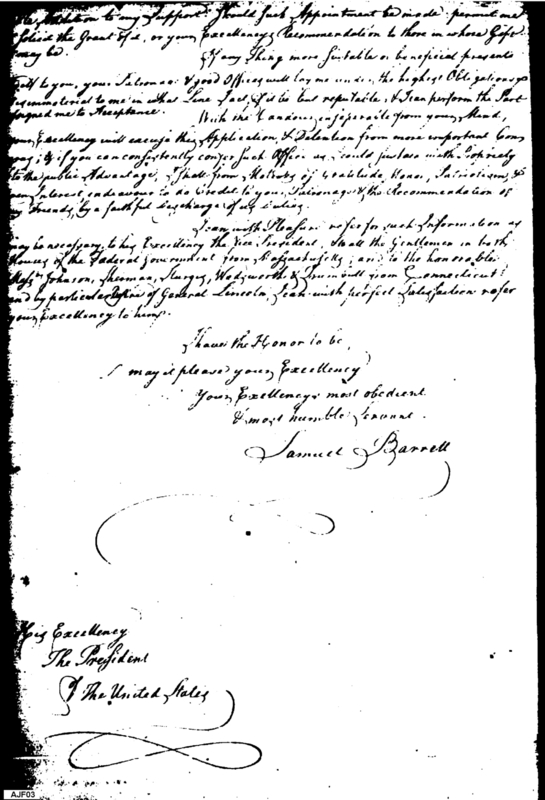 Addition to my Support. Should such Appointment be made permit me
solicit the Grant of it, or your Excellency's Recommendation to those in whose Gift
may be. If any Thing more suitable or beneficial presents
itself to you, your Patronage & good Offices will lay me under the highest Obligations
is immaterial to me in what Line I act, if it be but reputable, & I can perform the Part
assigned me to Acceptance. With the Candour inseparable from your Mind,
your Excellency will excuse this Application & Detention from more important
& if you can consistently confer such Office as I could sustain with Propriety
to the public Advantage, I shall from Motives of Gratitude, Honor, Patriotism, &
Interest endeavour to do Credit to your Patronage & the Recommendation of
my Friends, by a faithful discharge of its duties.
I can with Pleasure refer for such Information as
may be necessary to his Excellency the Vice President, & all the Gentlemen in both
Houses of the Federal Government from Massachusetts; and to the honorable
Messrs Johnson, Sherman, Sturges, Wadsworth & Trumbull from Connecticut;
and by particular Desire of General Lincoln, I can with perfect Satisfaction refer
your Excellency to him.
I have the Honor to be,
may it please your Excellency
Your Excellency's most obedient
& most humble Servant.
Samuel Barrell
His Excellency
The President
of The United States
AJF03